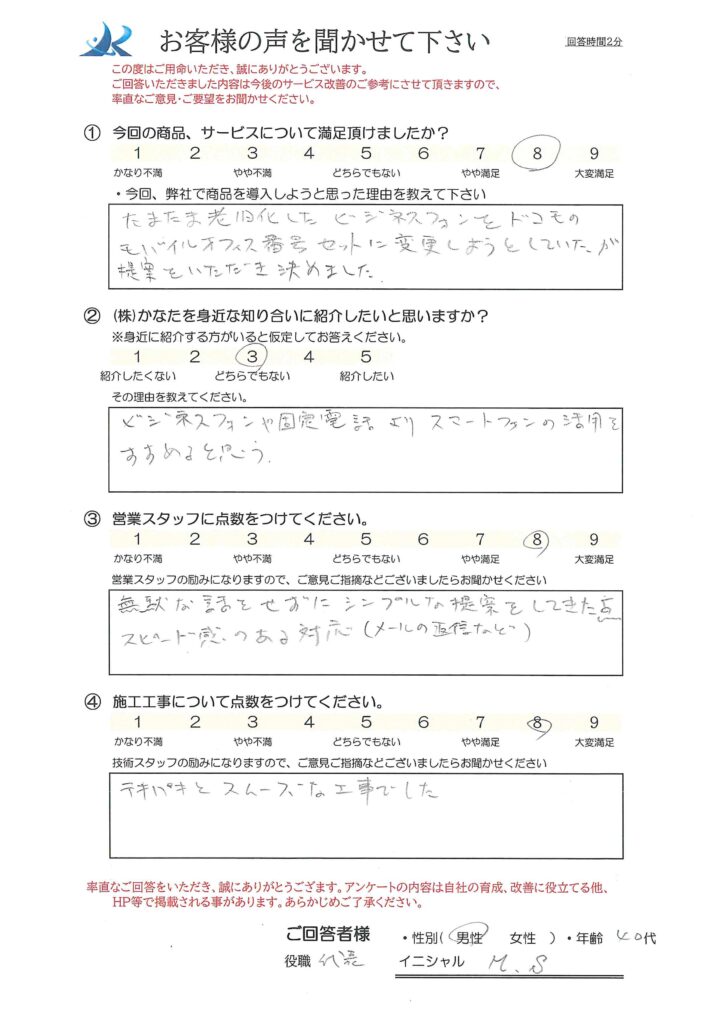 お客様の声を聞かせて下さい
回答時間2分
この度はご用命いただき、誠にありがとうございます。
ご回答いただきました内容は今後のサービス改善のご参考にさせて頂きますので、
率直なご意見・ご要望をお聞かせください。
① 今回の商品、サービスについて満足頂けましたか？
1 2 3 4 5 6 7 8 9
かなり不満 やや不満 どちらでもない やや満足 大変満足
・今回、弊社で商品を導入しようと思った理由を教えて下さい
たまたま老旧化したビジネスフォンをドコモの
モバイルオフィス番号セットに変更しようとしていたが
提案をいただき決めました.
② (株)かなたを身近な知り合いに紹介したいと思いますか？
※身近に紹介する方がいると仮定してお答えください。
1 2 3 4 5
紹介したくない どちらでもない 紹介したい
その理由を教えてください。
ビジネスフォンや固定電話よりスマートフォンの活用を
すすめると思う.
③ 営業スタッフに点数をつけてください。
1 2 3 4 5 6 7 8 9
かなり不満 やや不満 どちらでもない やや満足 大変満足
営業スタッフの励みになりますので、ご意見ご指摘などございましたらお聞かせください
無駄な話をせずにシンプルな提案をしてきた点
スピード感のある対応(メールの返信など)
④ 施工工事について点数をつけてください。
1 2 3 4 5 6 7 8 9
かなり不満 やや不満 どちらでもない やや満足 大変満足
技術スタッフの励みになりますので、ご意見ご指摘などございましたらお聞かせください
テキパキとスムーズな工事でした
率直なご回答をいただき、誠にありがとうござます。アンケートの内容は自社の育成、改善に役立てる他、
HP等で掲載される事があります。あらかじめご了承ください。
ご回答者様 ・性別( 男性 女性 )・年齢 40代
役職 代表 イニシャル M.S